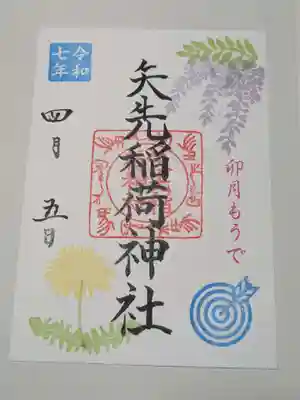 令和
七年
四月 五日
矢先稲荷神社
卯月もうで